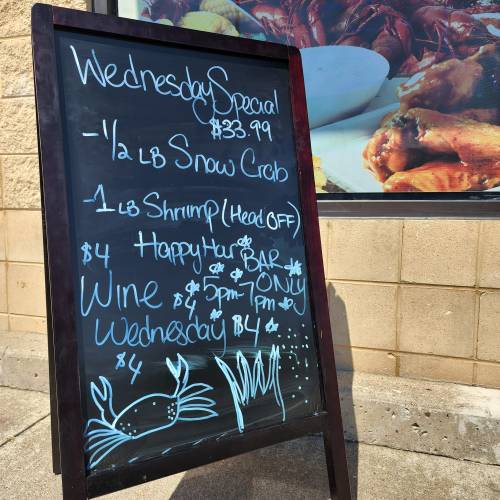 Wednesday Special
$33.99
- 1/2 LB Snow Crab
- 1 LB Shrimp (Head OFF)
Happy Hour BAR ONLY
$4
Wine $4 5pm-7pm
Wednesday $4
$4